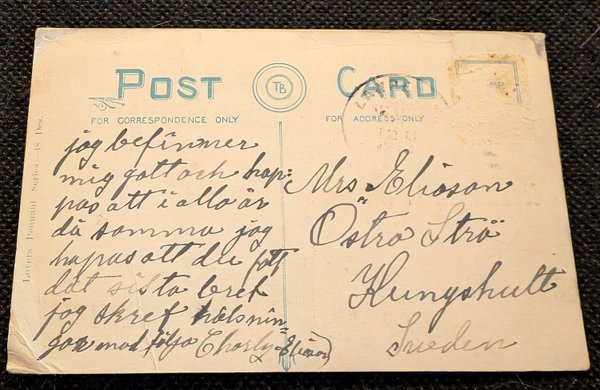 POST CARD
TB
FOR CORRESPONDENCE ONLY
FOR ADDRESS ONLY
Lovers Pennant Series—18 Des.
jag befinner
mig gott och hap=
pas att i alla är
då samma jag
hapas att du fott
dat sista bref
jag skref hälsnin=
gar med följa Charly Eliason
Mrs Eliason
Östra Strö
Kungshult
Sweden